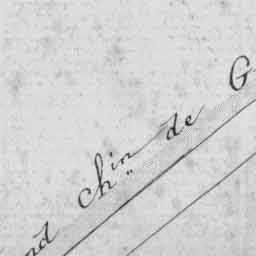 nd ch.in de G